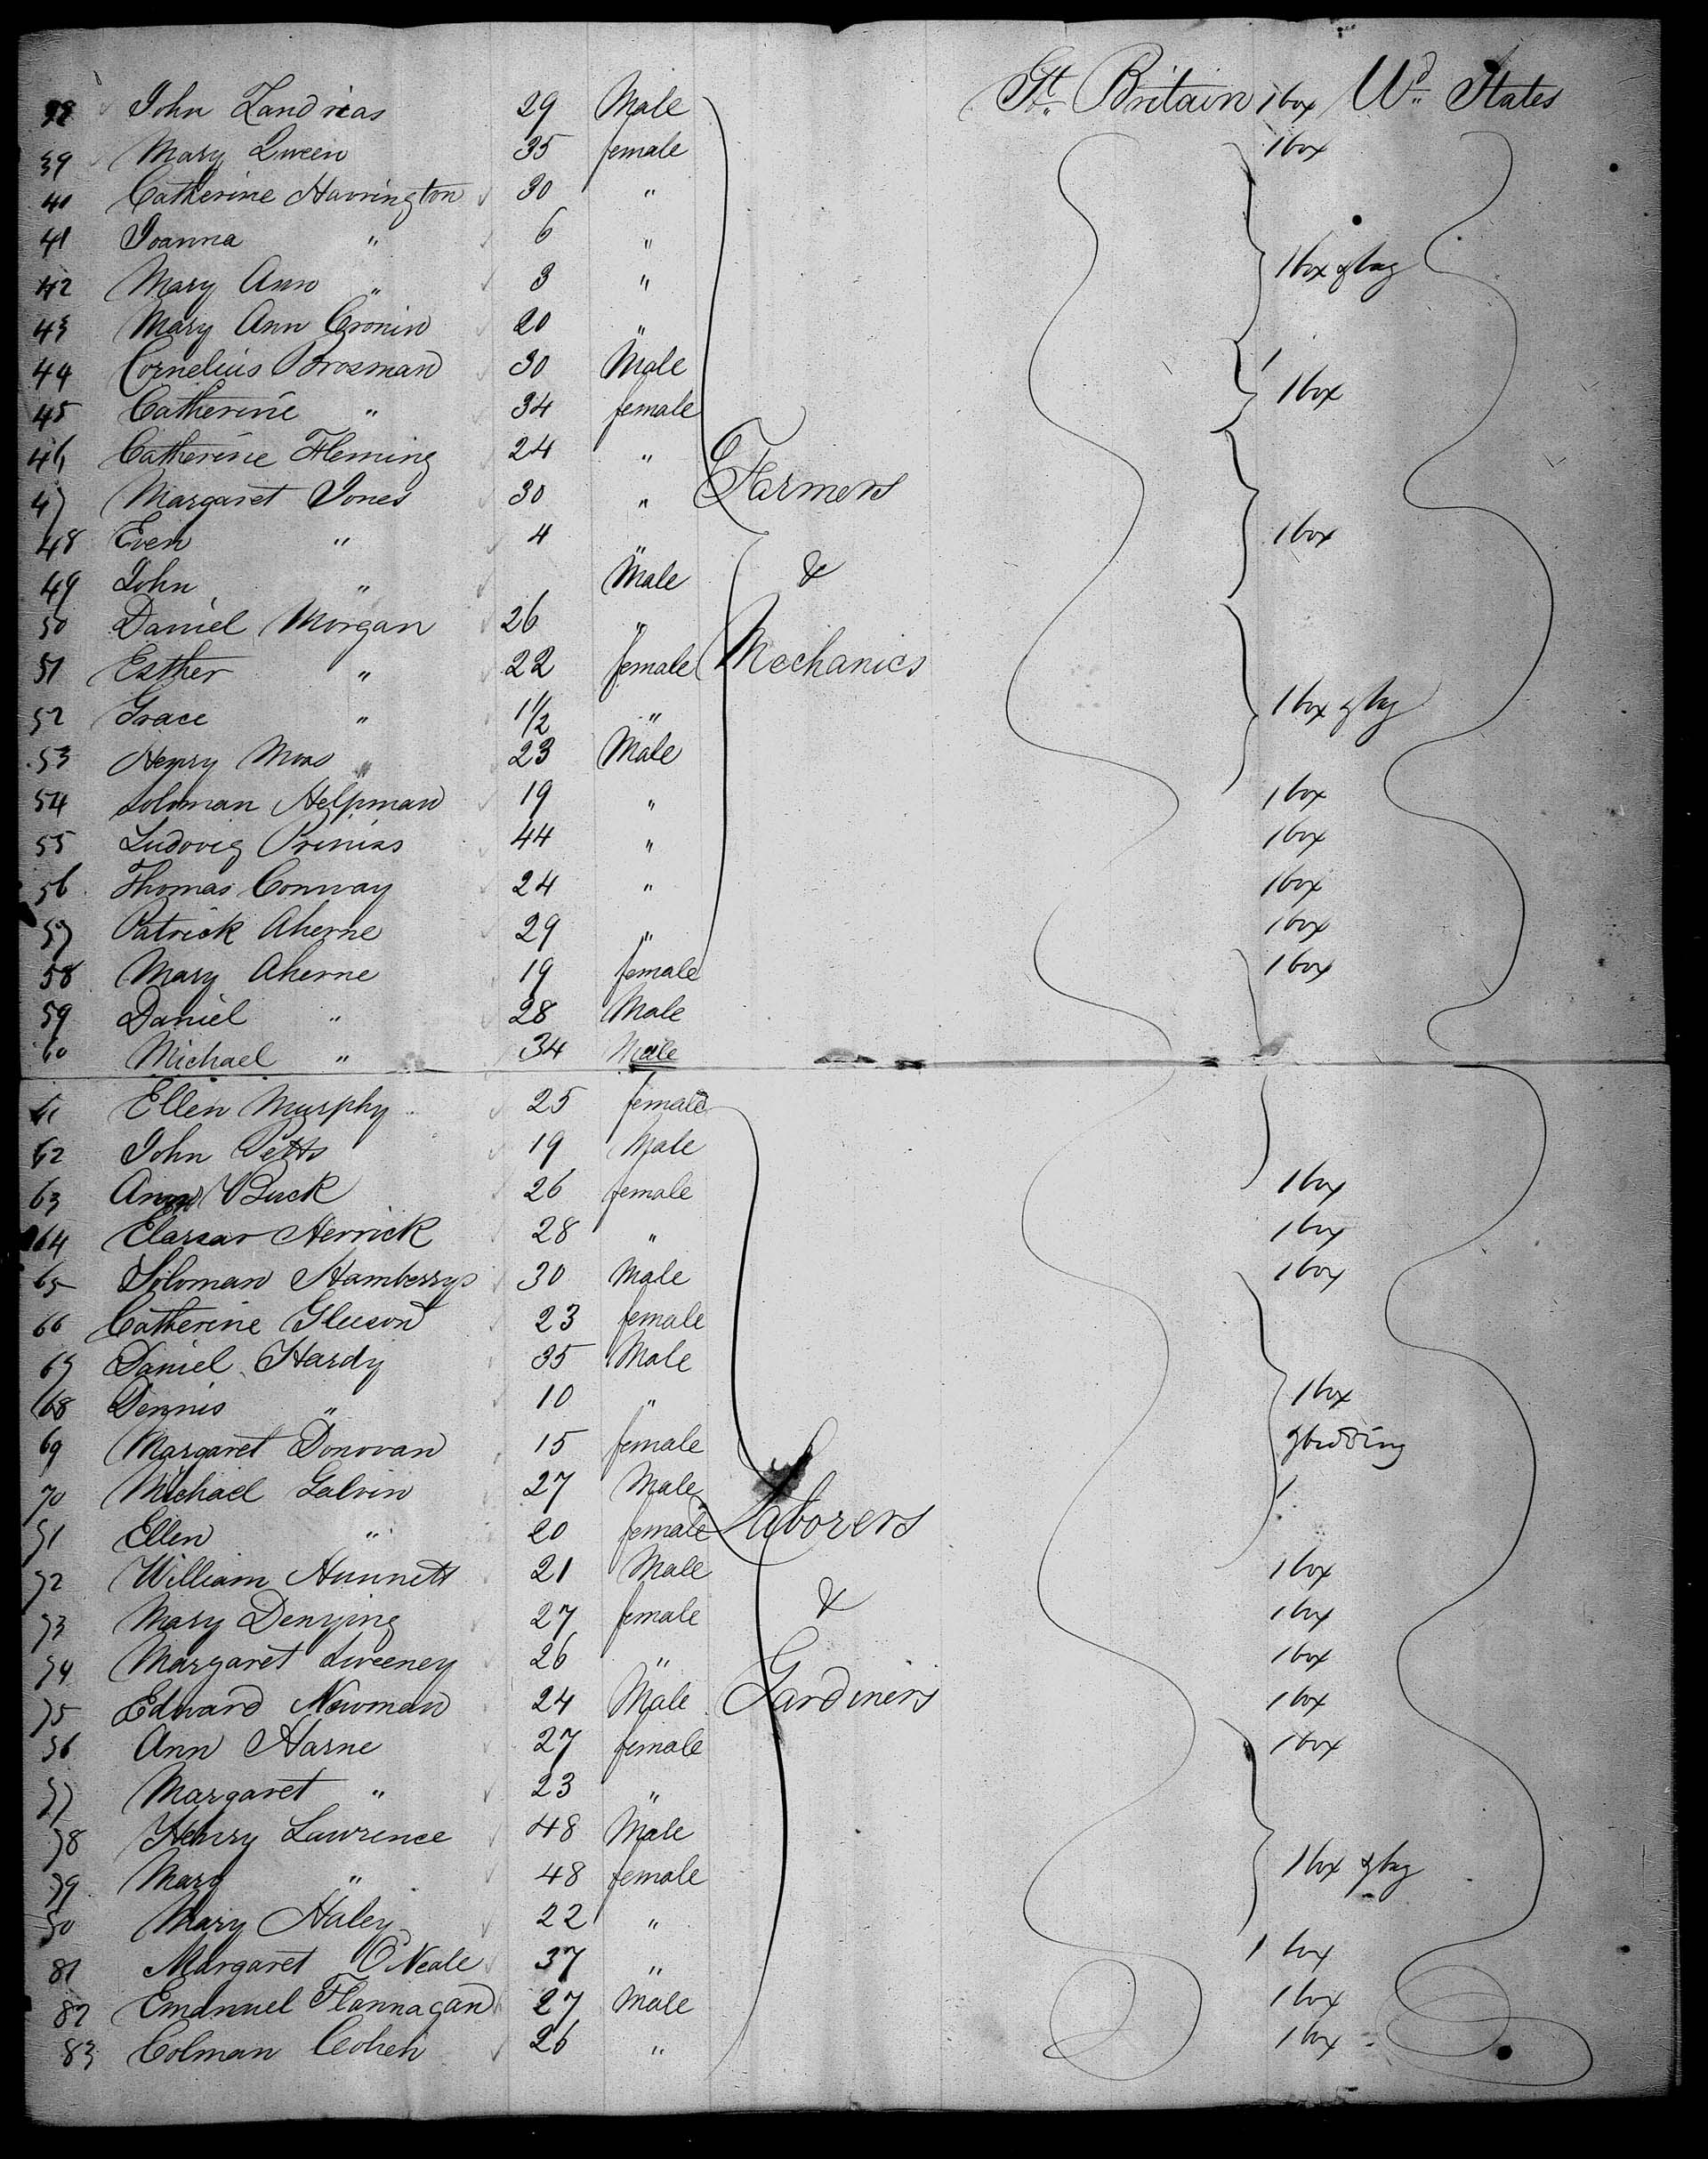 38 John Landrias 29 Male Gt. Britain 1 box Ud. States
39 Mary Queen 35 female 1 box
40 Catherine Harrington 30 "
41 Joanna " 6 "
42 Mary Ann " 3 " 1 box & bag
43 Mary Ann Cronin 20 "
44 Cornelius Brosman 30 Male
45 Catherine " 34 female 1 box
46 Catherine Fleming 24 "
47 Margaret Jones 30 " Farmers
48 Even " 4 " 1 box
49 John " Male &
50 Daniel Morgan 26 "
51 Esther " 22 female Mechanics
52 Grace " 1 1/2 " 1 box & bag
53 Henry Moas " 23 Male
54 Soloman Helpman 19 " 1 box
55 Ludovig 44 " 1 box
56 Thomas Conway 24 " 1 box
57 Patrick Aherne 29 " 1 box
58 Mary Aherne 19 female 1 box
59 Daniel " 28 Male
60 Michael " 34 Male
61 Ellen Murphy 25 female
62 John Petts 19 Male
63 Ann Buck 26 female 1 box
64 Herrick 28 " 1 box
65 Soloman 30 Male 1 box
66 Catherine Gleeson 23 female
67 Daniel Hardy 35 Male
68 Dennis " 10 " 1 box
69 Margaret Donovan 15 female & bedding
70 Michael Galvin 27 Male
71 Ellen " 20 female Laborers
72 William Hunnett 21 Male 1 box
73 Mary Denying 27 female & 1 box
74 Margaret Sweeney 26 " 1 box
75 Edward Newman 24 Male Gardiners 1 box
76 Ann Harne 27 female 1 box
77 Margaret " 23 "
78 Henry Lawrence 48 Male
79 Mary " 48 female 1 box & bag
80 Mary Haley 22 "
81 Margaret O'Neale 37 " 1 box
82 Emanuel Flannagan 27 Male 1 box
83 Colman Cohen 26 " 1 box